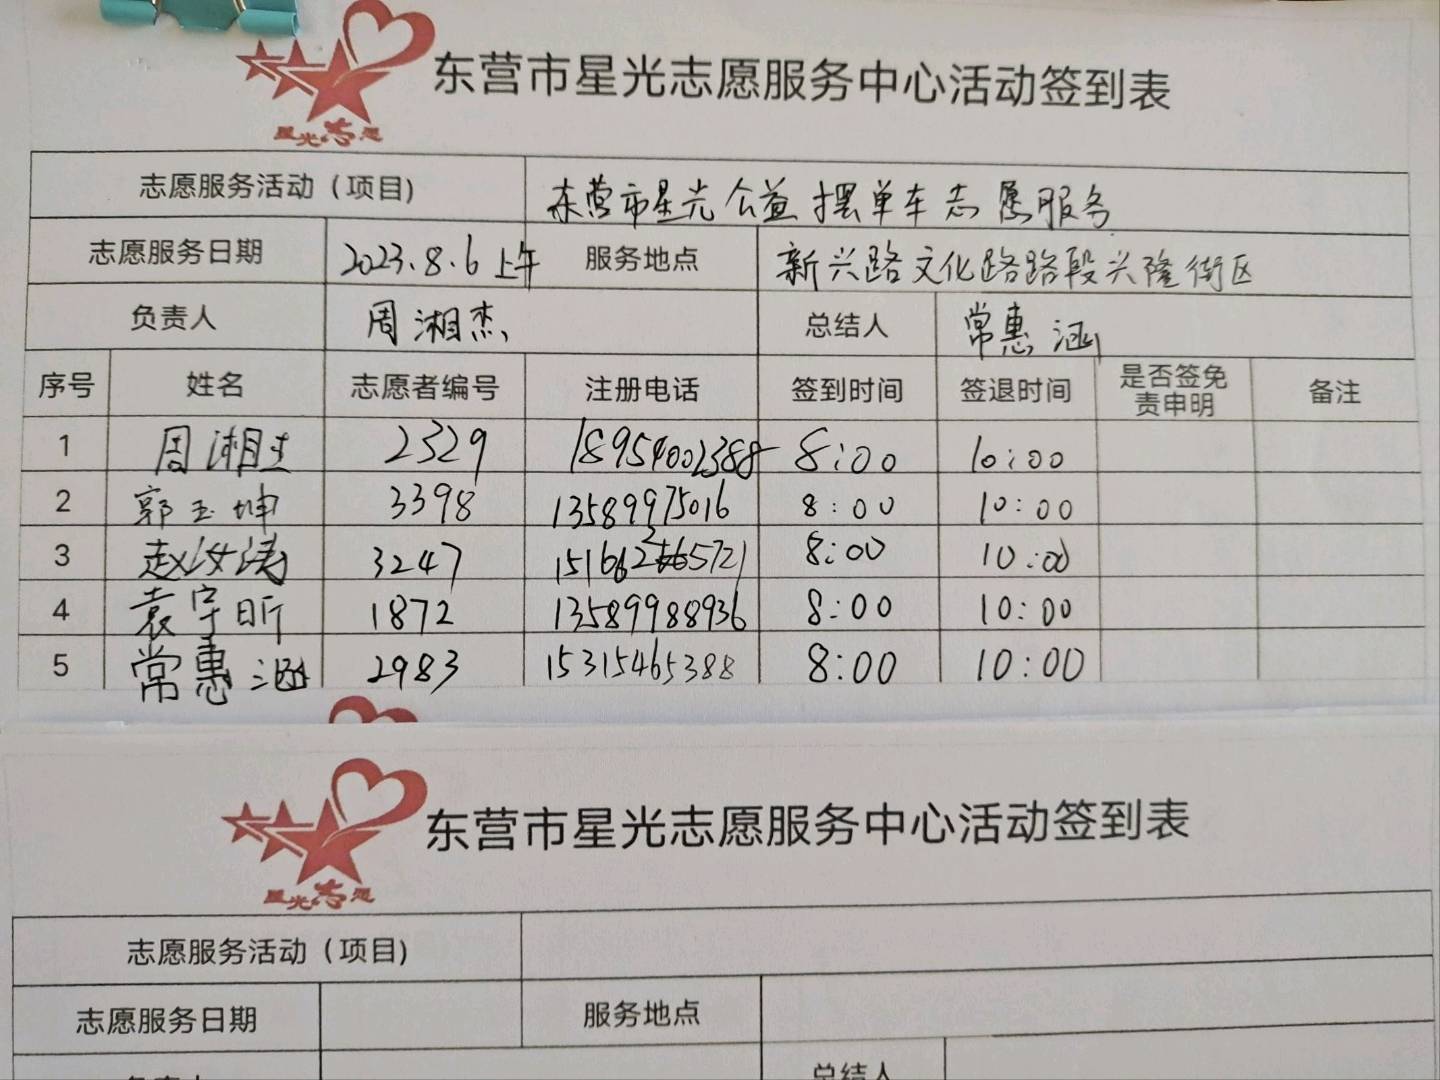 星光志愿
东营市星光志愿服务中心活动签到表
志愿服务活动（项目） 东营市星光公益摆单车志愿服务
志愿服务日期 2023.8.6上午 服务地点 新兴路文化路路段兴隆街区
负责人 周湘杰 总结人 常惠涵
序号 姓名 志愿者编号 注册电话 签到时间 签退时间 是否签免责申明 备注
1 周湘 2329 18954002388 8:00 10:00
2 郭玉坤 3398 13589975016 8:00 10:00
3 赵汝涛 3247 8:00 10:00
4 袁宇昕 1872 13589988936 8:00 10:00
5 常惠涵 2983 15315465388 8:00 10:00
星光志愿
东营市星光志愿服务中心活动签到表
志愿服务活动（项目）
志愿服务日期 服务地点
负责人 总结人